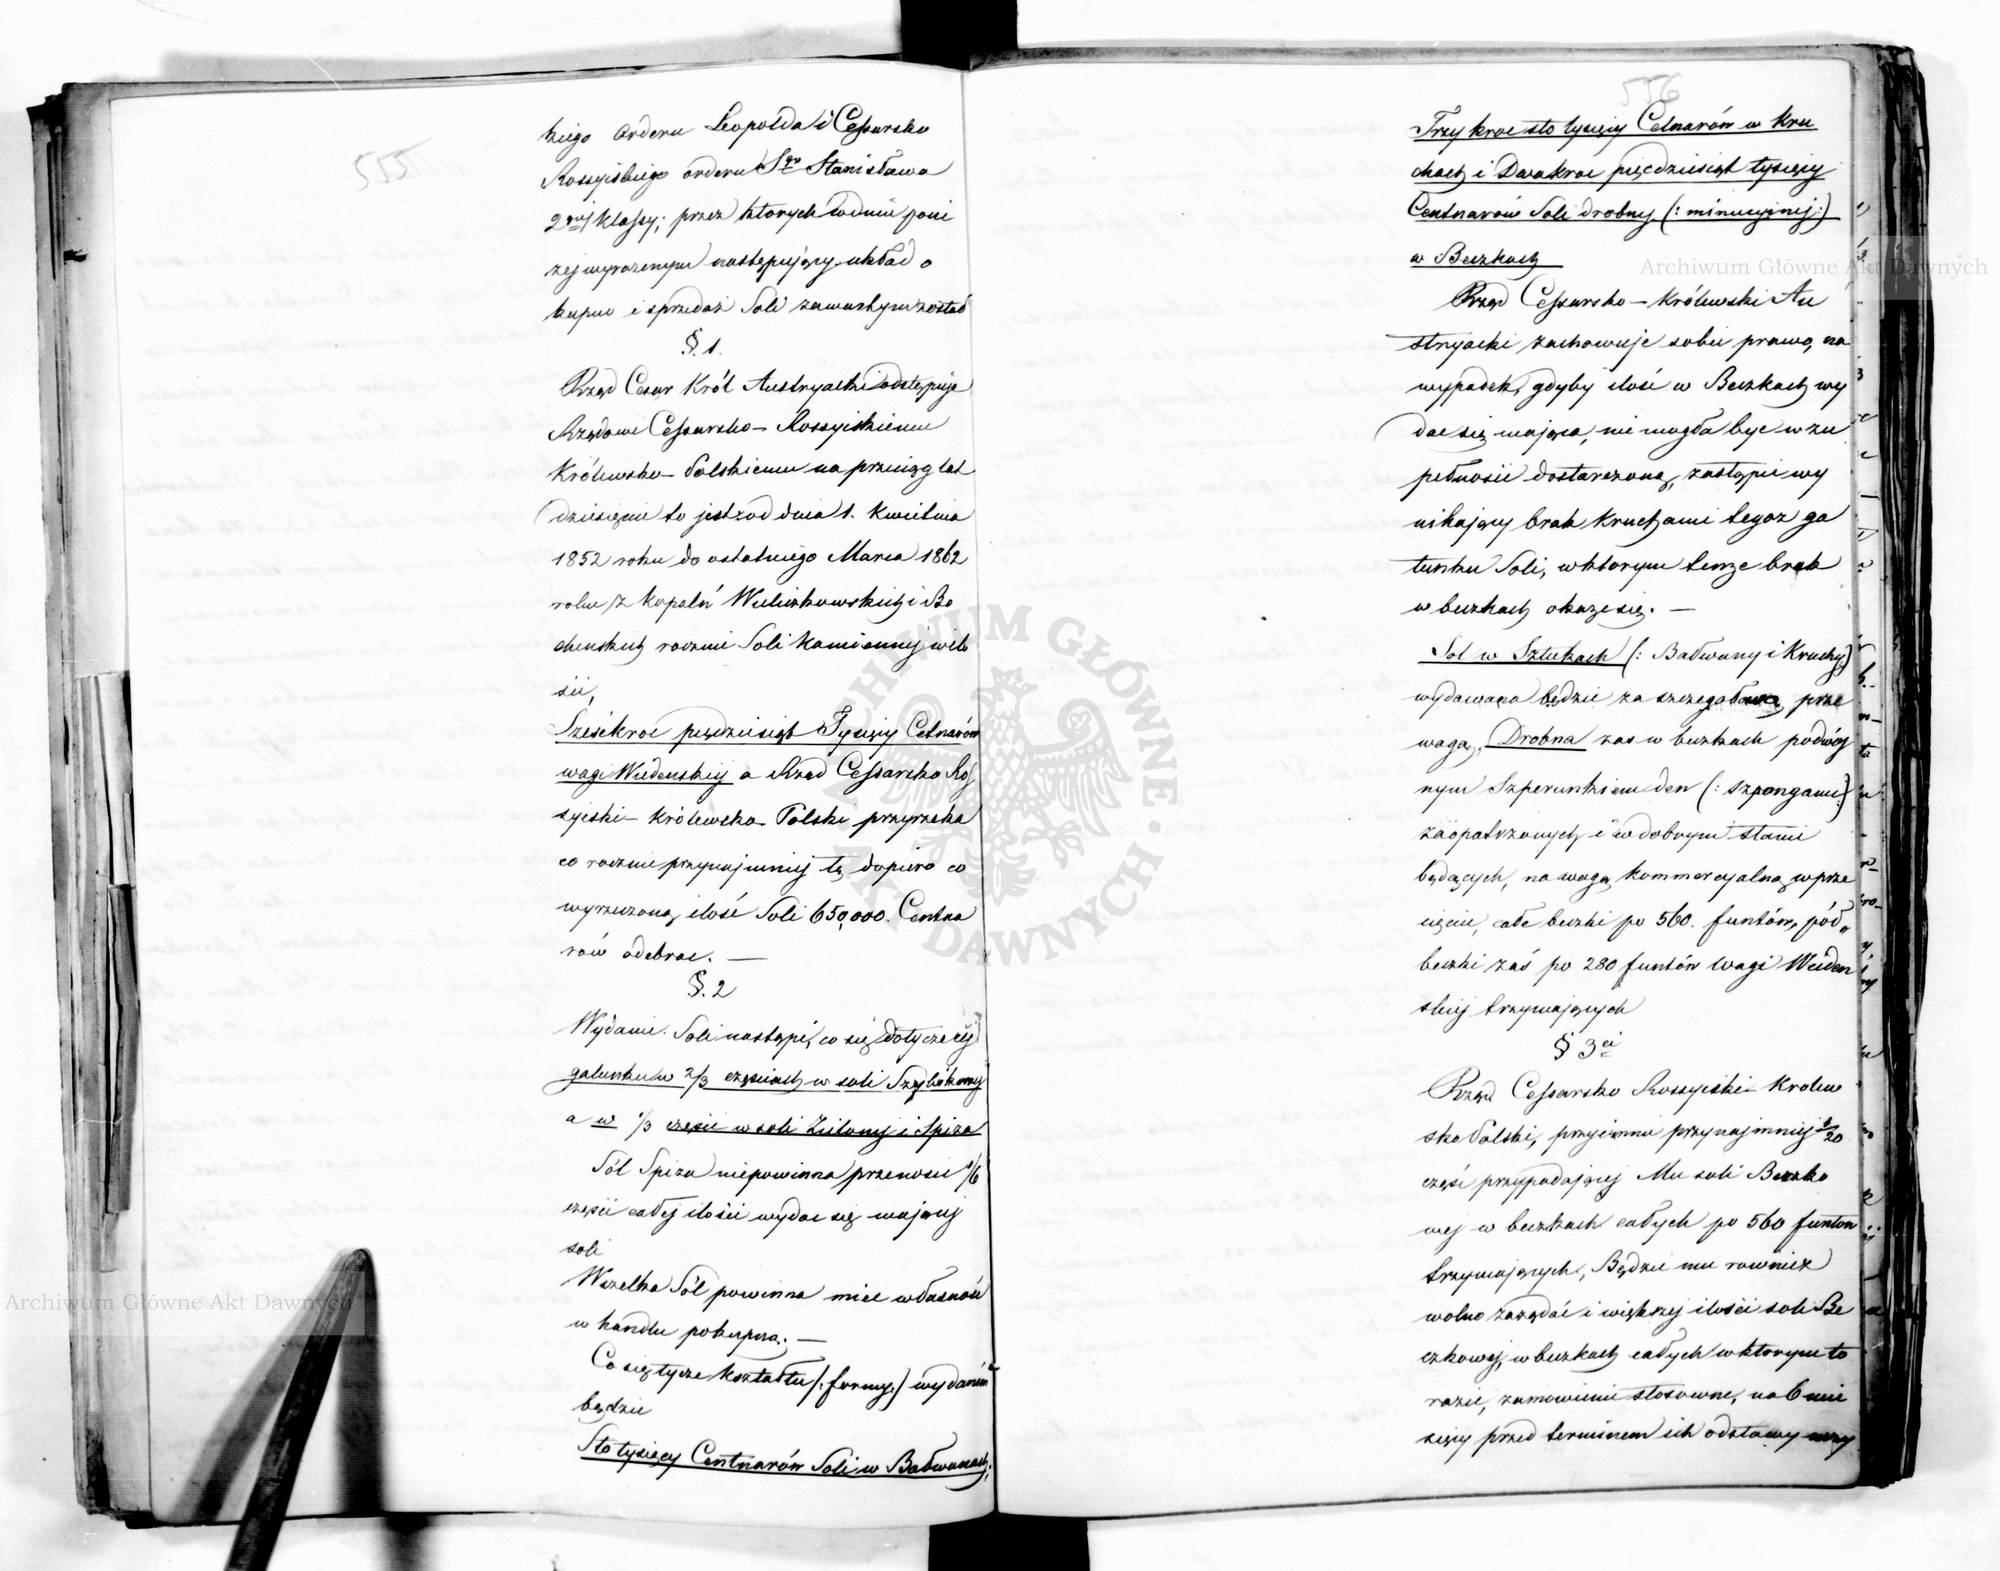 555
kiego Orderu Leopolda i Cessarsko
Rossyiskiego orderu Sgo Stanisława
2giej Klassy; przez ktorych w dniu poni
żej wyrażonym następujący układ o
kupno i sprzedaż Soli zawartym został
§. 1.
Rząd Cesar Król Austryacki odstępuje
Rządowi Cessarsko – Rossyiskiemu
Królewsko – Polskiemu na przeciąg lat
dziesięciu to jest od dnia 1. Kwietnia
1852 roku do ostatniego Marca 1862
roku z kopalń Wieliczkowskich i Bo
cheńskich rocznie Soli kamiennej w ilo
ści,
Sześćkroc pięćdziesiąt Tysięcy Cetnarów
wagi Wiedenskiej a Rząd Cessarsko Ros
syiski – królewsko Polski przyrzeka
co rocznie przynajmniej tę dopiero co
wyrzeczoną ilość Soli 650,000. Centna
rów odebrac. —
§. 2
Wydanie Soli nastąpi, co się dotycze jej
gatunku w 2/3 częściach w soli Szybikowej
a w 1/3 części w soli Zielonej i Spiza
Sól Spiza niepowinna przenosic 1/6
części całej ilości wydac się mającej
soli
Wszelka Sól powinna miec własność
w handlu pokupną. —
Co się tycze kształtu (: formy :) wydaném
będzie
Sto tysięcy Centnarów Soli w Bałwanach;
556
Trzykroc sto tysięcy Cetnarów w Kru
chach i Dwakroc pięcdziesiąt tysięcy
Centnarów Soli drobnej (: minucyjnej :)
w Beczkach
Rząd Cessarsko – Królewski Au
stryacki zachowuje sobie prawo, na
wypadek, gdyby ilość w Beczkach wy
dac się mająca, nie mogła byc w zu
pełności dostarczoną, zastąpic wy
nikający brak Kruchami tegoż ga
tunku Soli, w ktorym tenże brak
w beczkach okaże się. —
Sol w Sztukach (: Bałwany i Kruchy)
wydawana będzie za szczegołową prze
wagą, Drobna zas w beczkach podwój
nym Szperunkiem den (: szpongami :)
zaopatrzonych i w dobrym stanie
będących, na wagę kommercyalną w prze
cięciu, całe beczki po 560. funtów, pół„
beczki zaś po 280 funtów wagi Wieden
skiej trzymających
§ 3ci
Rząd Cessarsko Rossyiski – Krolew
sko Polski, przyjmie przynajmniej 1/20
część przypadającej Mu soli Beczko
wej w beczkach całych po 560 funtow
trzymających, Będzie mu rownież
wolno zażądać i większej ilości soli Be
czkowej, w beczkach całych w ktorym to
razie, zamowienie stosowne, na 6 mie
sięcy przed terminem ich odstawy
Archiwum Główne Akt Dawnych
Archiwum Główne Akt Dawnych
ARCHIWUM GŁÓWNE AKT DAWNYCH